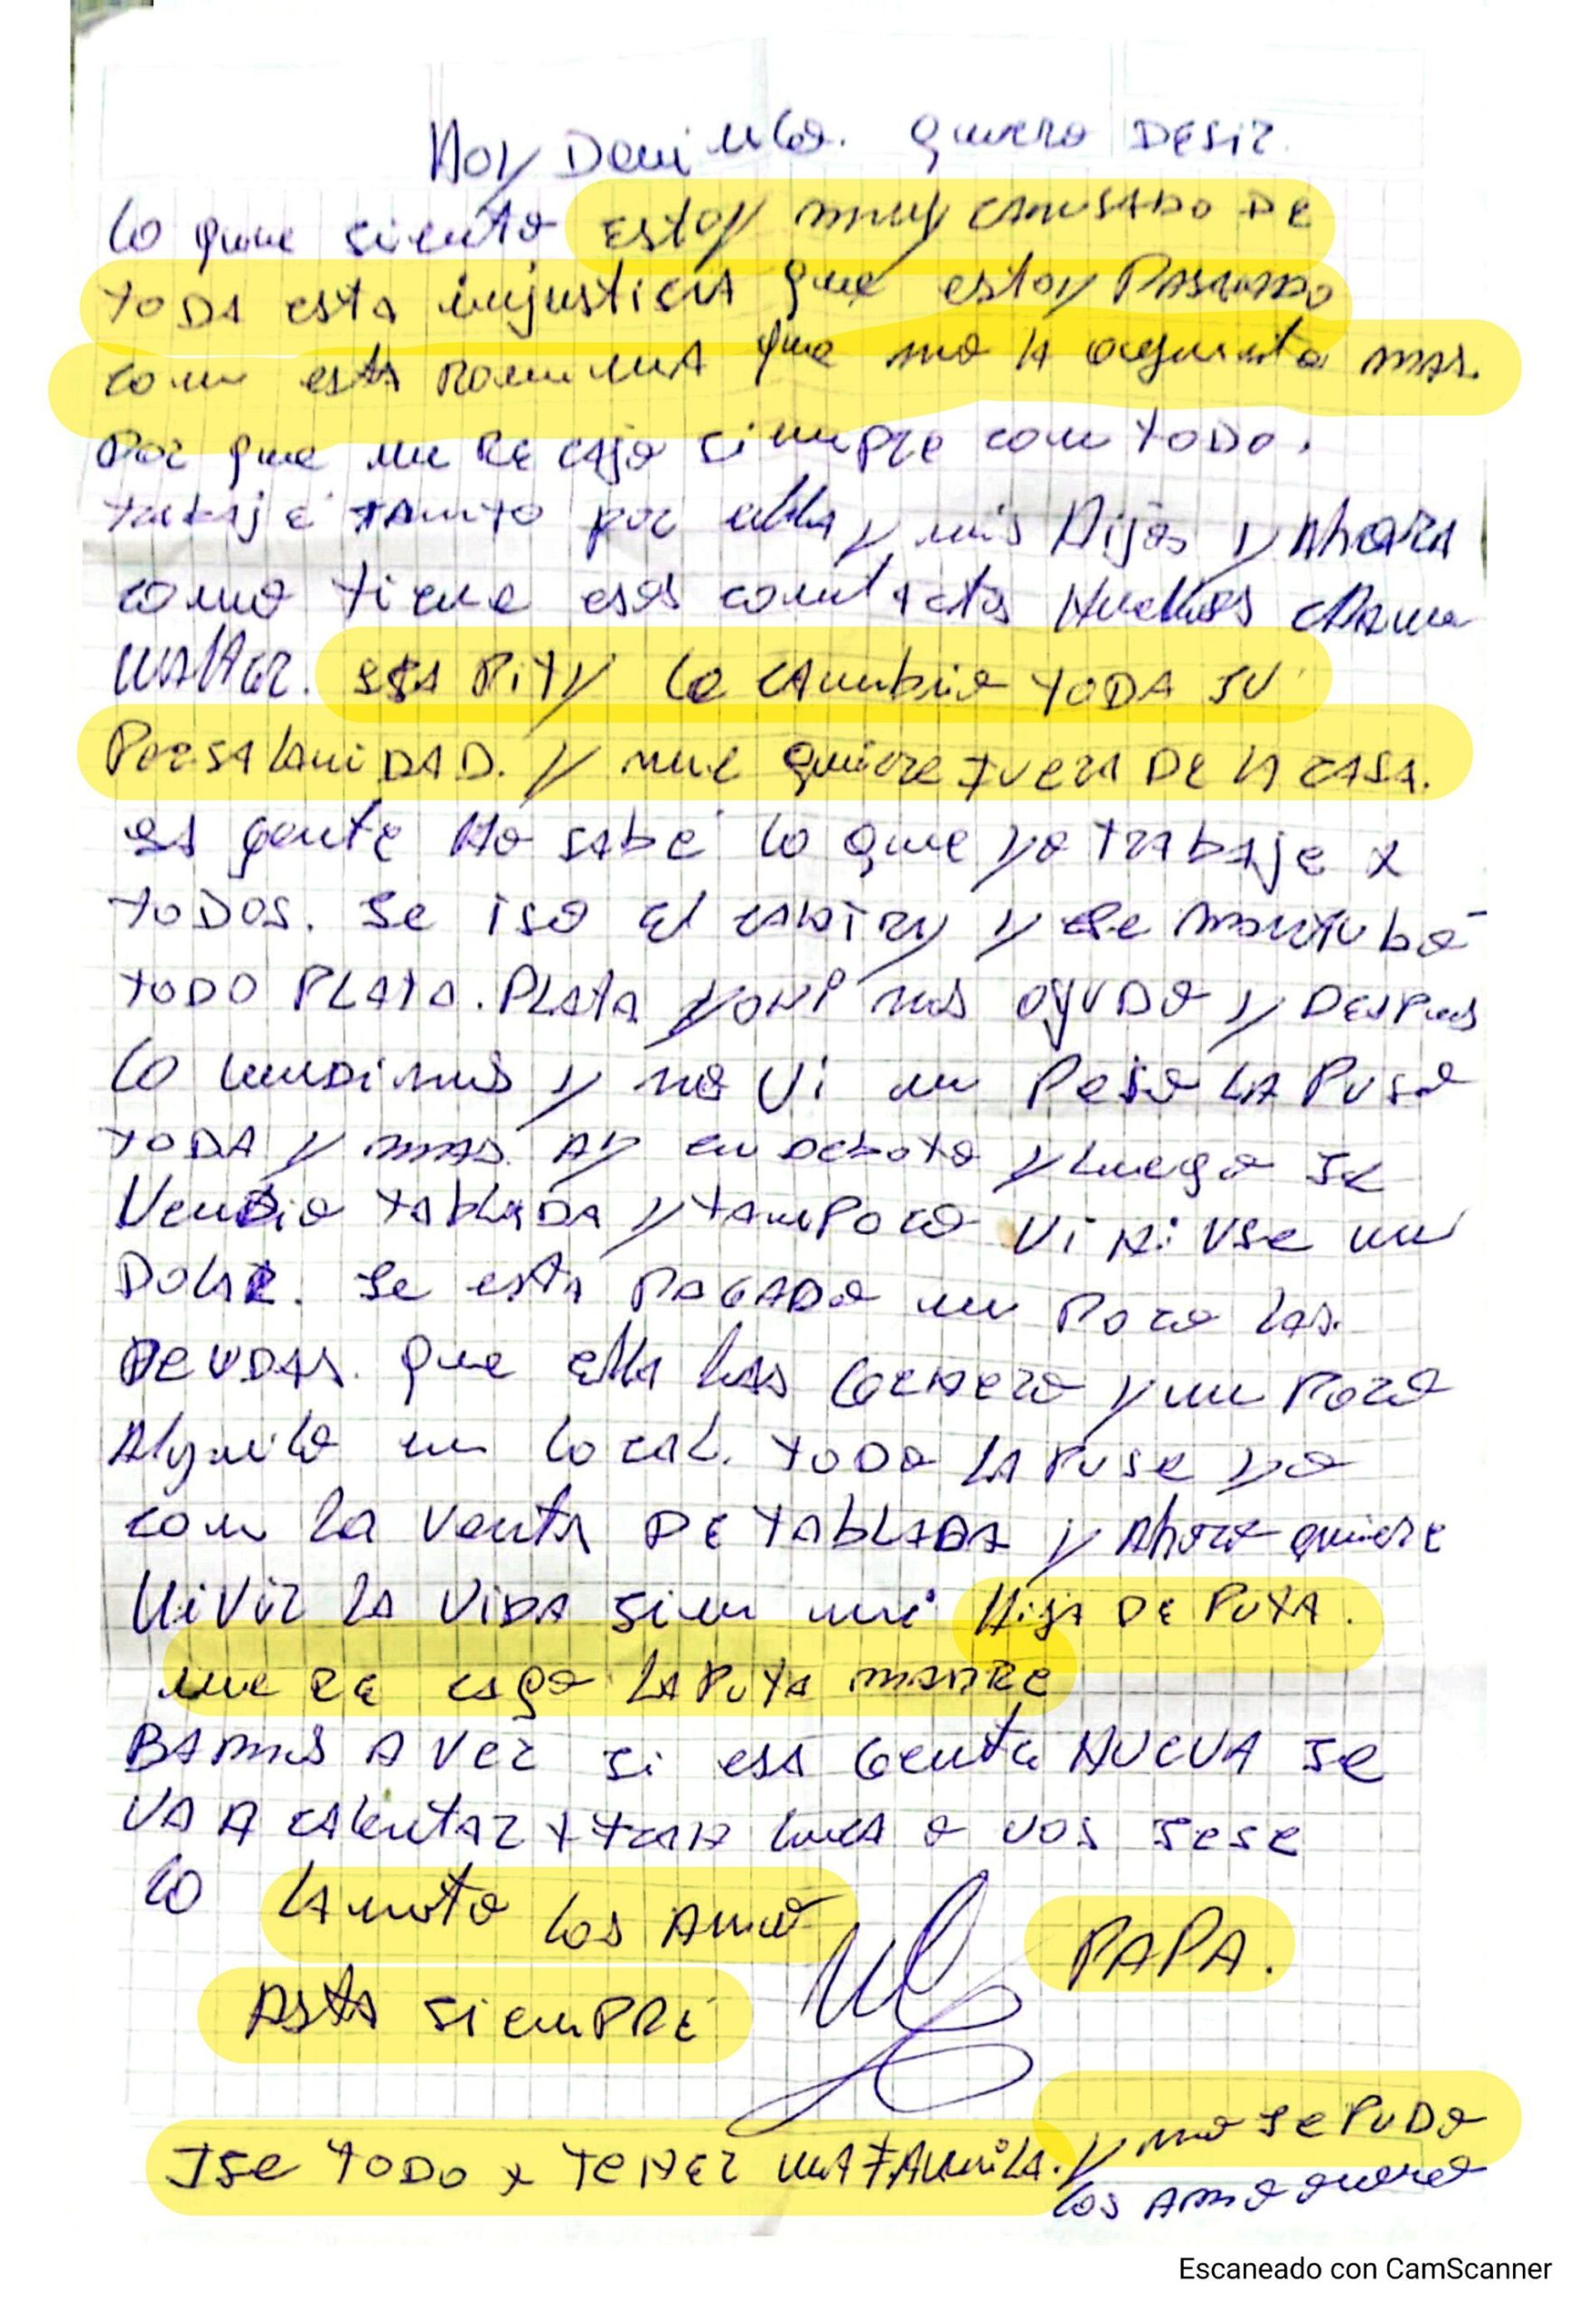 Hoy Domingo. quiero DESIR
lo que siento ESTOY muy CANSADO DE
TODA esta injusticia que estoy PASANDO
con esta ROMINA que no la aguanto mas.
Por que me RE cago siempre con toDo.
trabajé tanto por ella y mis Hijos y Ahora
como tiene esos contactos Nuevos
ESA PITY le cambio TODA SU
PersalaniDAD. y me quiere FUERA DE LA CASA.
esa gente No sabe lo que yo trabaje x
toDos. Se iso el y se mantubo
toDO PLATA. PLATA nos ayuDo y DESPues
lo vendimos y no vi un Peso LA Puse
toDA y mas Ay en Devoto y Luego se
VenDio tablaDA y tampoco vi Ni Use un
DolaR. Se esta PAGADo un Poco las.
DeuDAs. que ella las Genero y un Poco
Alquilo un local. toDo LA Puse yo
con la Venta DE TABLADA y Ahora quiere
ViVir la ViDA sin mi Hija DE PUTA.
me RE cago LA PUTA MADRE
BAmos A VER si esa Gente NUEVA se
VA A calentar x a vos sese
lo lamento los Amo
PAPA.
Asta siemPRE
Ise toDo x TENER una FAmila. y no se PuDo
los Amo
Escaneado con CamScanner